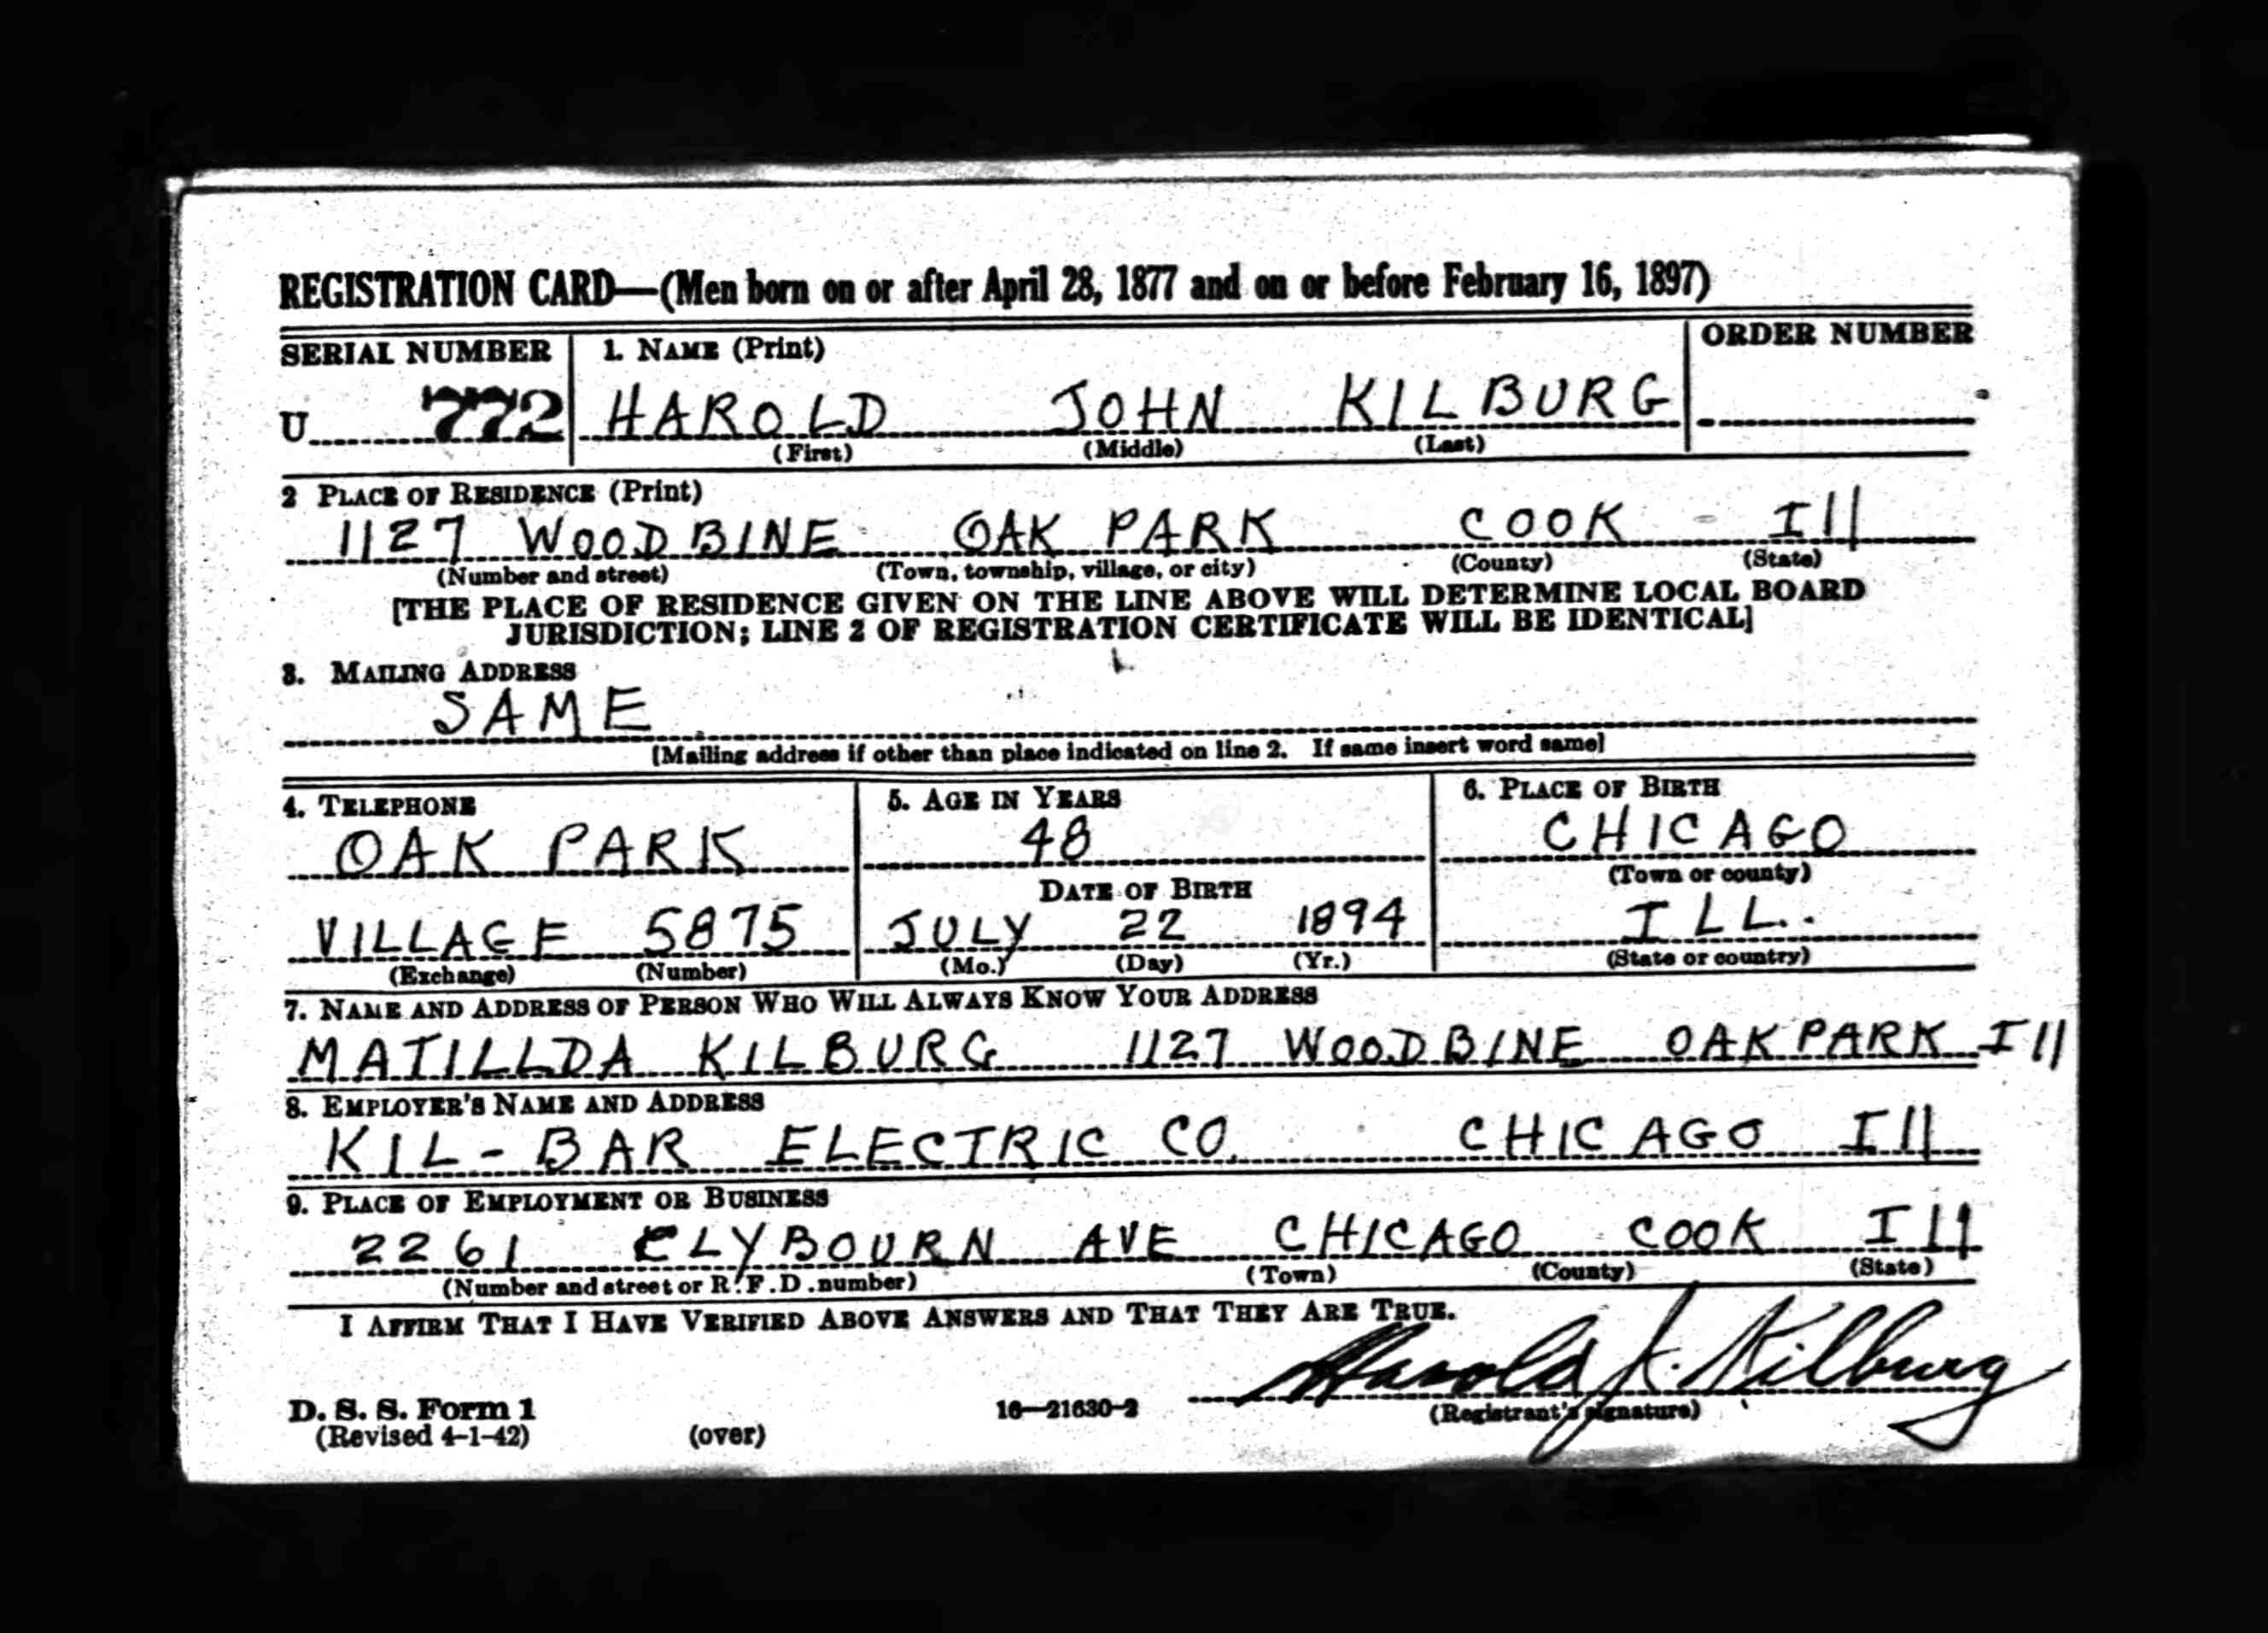 REGISTRATION CARD—(Men born on or after April 28, 1877 and on or before February 16, 1897)
SERIAL NUMBER 1. NAME (Print) ORDER NUMBER
U 772 HAROLD JOHN KILBURG
(First) (Middle) (Last)
2 PLACE OF RESIDENCE (Print)
1127 WOODBINE OAK PARK COOK Ill
(Number and street) (Town, township, village, or city) (County) (State)
[THE PLACE OF RESIDENCE GIVEN ON THE LINE ABOVE WILL DETERMINE LOCAL BOARD
JURISDICTION; LINE 2 OF REGISTRATION CERTIFICATE WILL BE IDENTICAL]
3. MAILING ADDRESS
SAME
[Mailing address if other than place indicated on line 2. If same insert word same]
4. TELEPHONE 5. AGE IN YEARS 6. PLACE OF BIRTH
OAK PARK 48 CHICAGO
(Town or county)
DATE OF BIRTH
VILLAGE 5875 JULY 22 1894 ILL.
(Exchange) (Number) (Mo.) (Day) (Yr.) (State or country)
7. NAME AND ADDRESS OF PERSON WHO WILL ALWAYS KNOW YOUR ADDRESS
MATILLDA KILBURG 1127 WOODBINE OAK PARK Ill
8. EMPLOYER'S NAME AND ADDRESS
KIL-BAR ELECTRIC CO. CHICAGO Ill
9. PLACE OF EMPLOYMENT OR BUSINESS
2261 CLYBOURN AVE CHICAGO COOK Ill
(Number and street or R. F. D. number) (Town) (County) (State)
I AFFIRM THAT I HAVE VERIFIED ABOVE ANSWERS AND THAT THEY ARE TRUE.
Harold J. Kilburg
D. S. S. Form 1 16—21630-2 (Registrant's signature)
(Revised 4-1-42) (over)